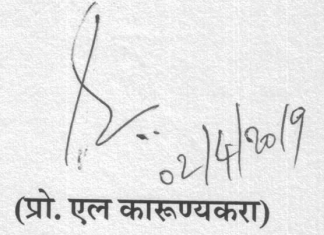 02/4/2019
(प्रो. एल कारूण्यकरा)